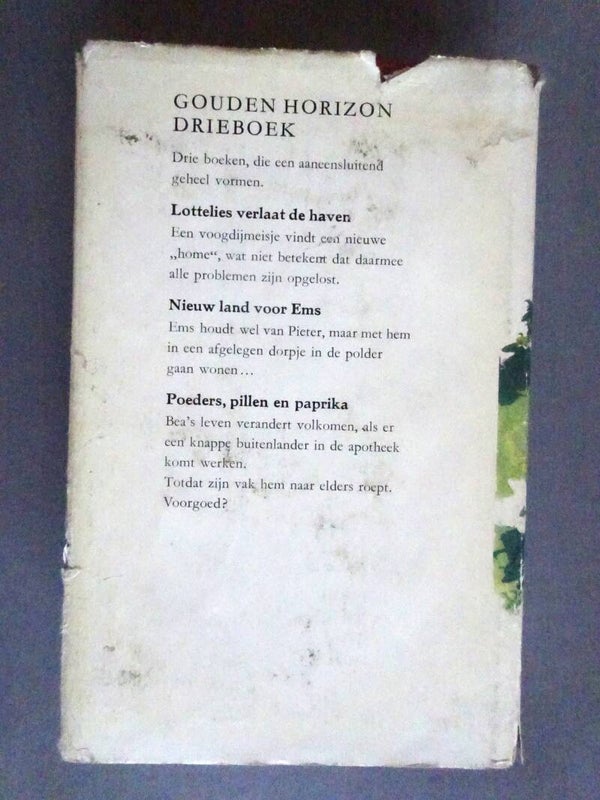 GOUDEN HORIZON
DRIEBOEK
Drie boeken, die een aaneensluitend
geheel vormen.
Lottelies verlaat de haven
Een voogdijmeisje vindt een nieuwe
„home“, wat niet betekent dat daarmee
alle problemen zijn opgelost.
Nieuw land voor Ems
Ems houdt wel van Pieter, maar met hem
in een afgelegen dorpje in de polder
gaan wonen...
Poeders, pillen en paprika
Bea's leven verandert volkomen, als er
een knappe buitenlander in de apotheek
komt werken.
Totdat zijn vak hem naar elders roept.
Voorgoed?